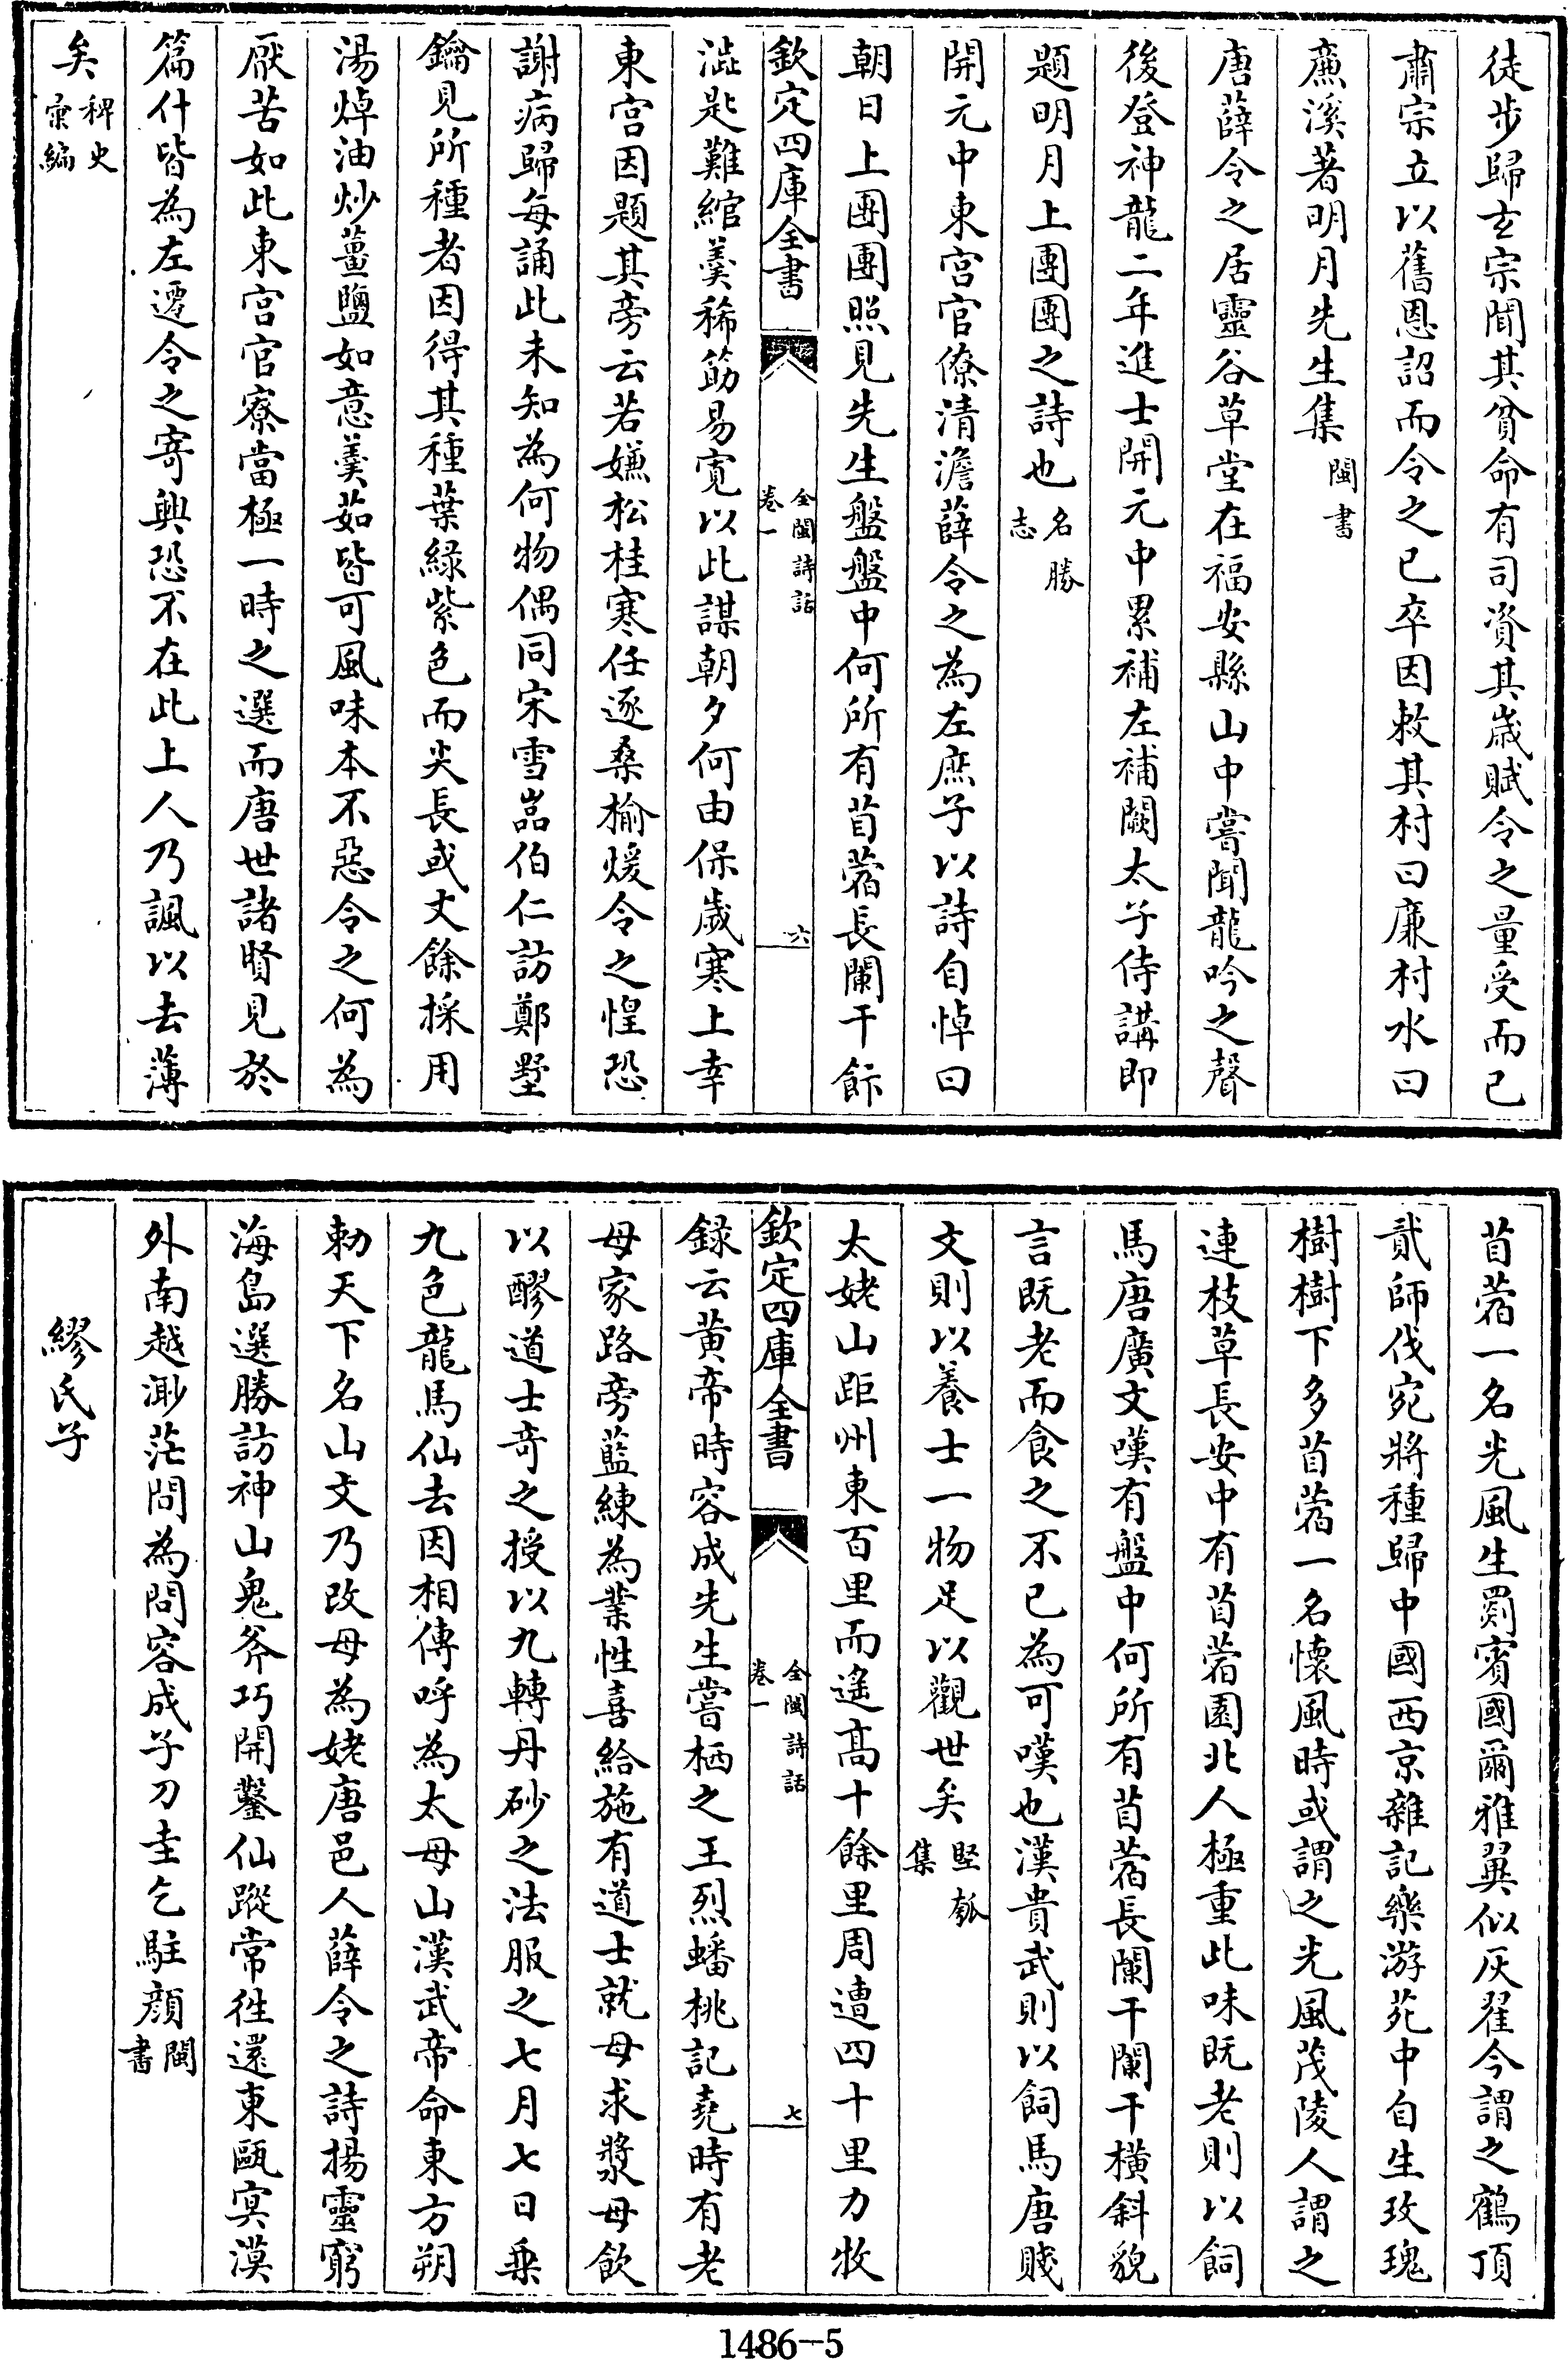 徒步歸玄宗聞其貧命有司資其歳賦令之量受而已
肅宗立以舊恩詔而令之已卒因敕其村曰廉村水曰
廉溪著明月先生集閩書
唐薛令之居靈谷草堂在福安縣山中嘗聞龍吟之聲
後登神龍二年進士開元中累補左補闕太子侍講即
題明月上團團之詩也名勝志
開元中東宫官僚清澹薛令之為左庶子以詩自悼曰
朝日上團團照見先生盤盤中何所有苜蓿長闌干飰
欽定四庫全書
全閩詩話
卷一
六
澁匙難綰羹稀筯易寛以此謀朝夕何由保歳寒上幸
東宫因題其旁云若嫌松桂寒任逐桑榆煖令之惶恐
謝病歸每誦此未知為何物偶同宋雪嵓伯仁訪鄭墅
鑰見所種者因得其種葉緑紫色而尖長或丈餘採用
湯焯油炒薑鹽如意羹茹皆可風味本不惡令之何為
厭苦如此東宫官寮當極一時之選而唐世諸賢見於
篇什皆為左遷令之寄興恐不在此上人乃諷以去薄
矣稗史彚編
苜蓿一名光風生罽賓國爾雅翼似灰翟今謂之鶴頂
貳師伐宛將種歸中國西京雜記樂游苑中自生玫瑰
樹樹下多苜蓿一名懷風時或謂之光風茂陵人謂之
連枝草長安中有苜蓿園北人極重此味既老則以飼
馬唐廣文嘆有盤中何所有苜蓿長闌干闌干橫斜貌
言既老而食之不已為可嘆也漢貴武則以飼馬唐賤
文則以養士一物足以觀世矣堅瓠集
太姥山距州東百里而遙高十餘里周遭四十里力牧
欽定四庫全書
全閩詩話
卷一
七
録云黄帝時容成先生嘗栖之王烈蟠桃記堯時有老
母家路旁藍練為業性喜給施有道士就母求漿母飲
以醪道士竒之授以九轉丹砂之法服之七月七日乗
九色龍馬仙去因相傳呼為太母山漢武帝命東方朔
勅天下名山文乃改母為姥唐邑人薛令之詩揚靈窮
海島選勝訪神山鬼斧巧開鑿仙蹤常徃還東甌溟漠
外南越渺茫間為問容成子刀圭乞駐顔閩書
繆氏子
1486-5